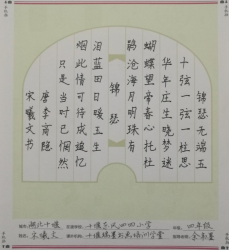 锦瑟无端五
十弦一弦一柱思
华年庄生晓梦迷
蝴蝶望帝春心托杜
鹃沧海月明珠有
锦瑟
泪蓝田日暖玉生
烟此情可待成追忆
只是当时已惘然
唐李商隐
宋羲文书
湖北十堰 四年级
宋羲文